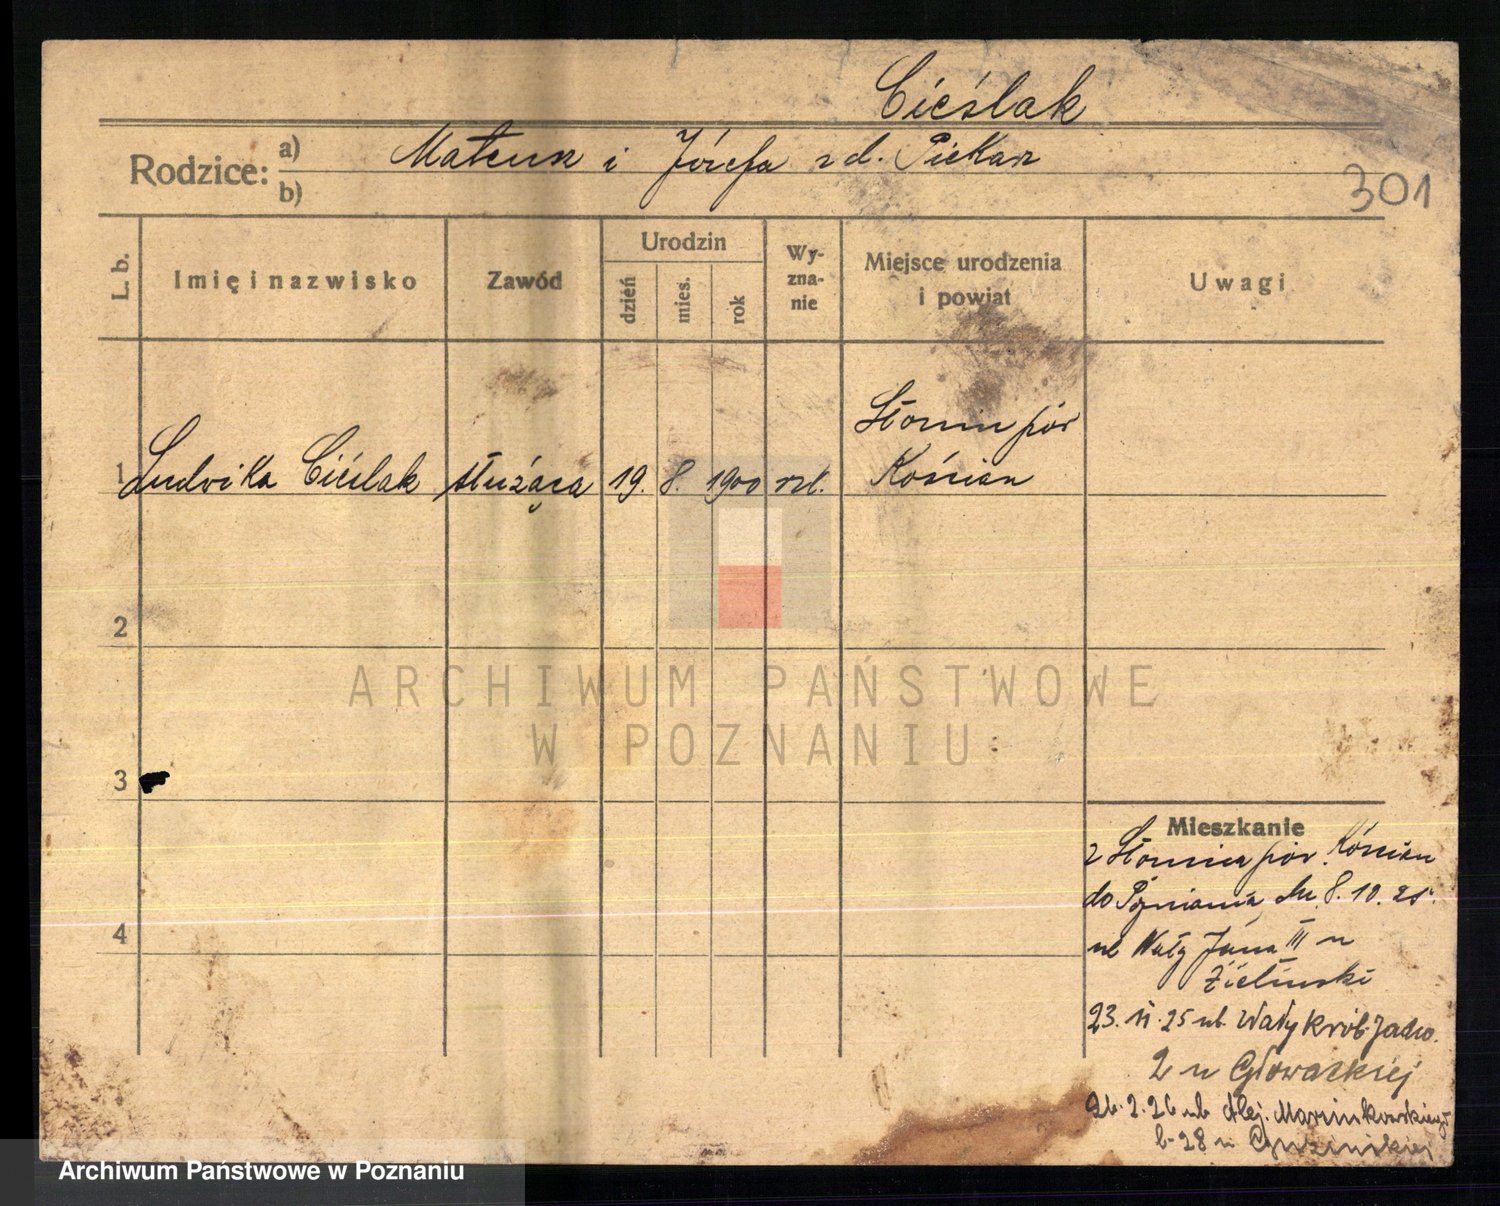 Cieślak
Rodzice: a) Mateusz i Józefa z d. Piekarz
b)
301
L. b.
Imię i nazwisko
Zawód
Urodzin
dzień
mies.
rok
Wy-
zna-
nie
Miejsce urodzenia
i powiat
Uwagi
1 Ludwika Cieślak służąca 19. 8. 1900 rzk.
Słonin pow
Kościan
2
3
4
ARCHIWUM PAŃSTWOWE
W POZNANIU
Mieszkanie
z Słonina pow. Kościan
do Poznania dn. 8. 10. 25.
ul Wały Jana III u
Zielinski
23. 11. 25 ul. Wały Król. Jadw.
2 u Głowackiej
26. 2. 26 ul Alej. Marcinkowskiego
b-28 u
Archiwum Państwowe w Poznaniu